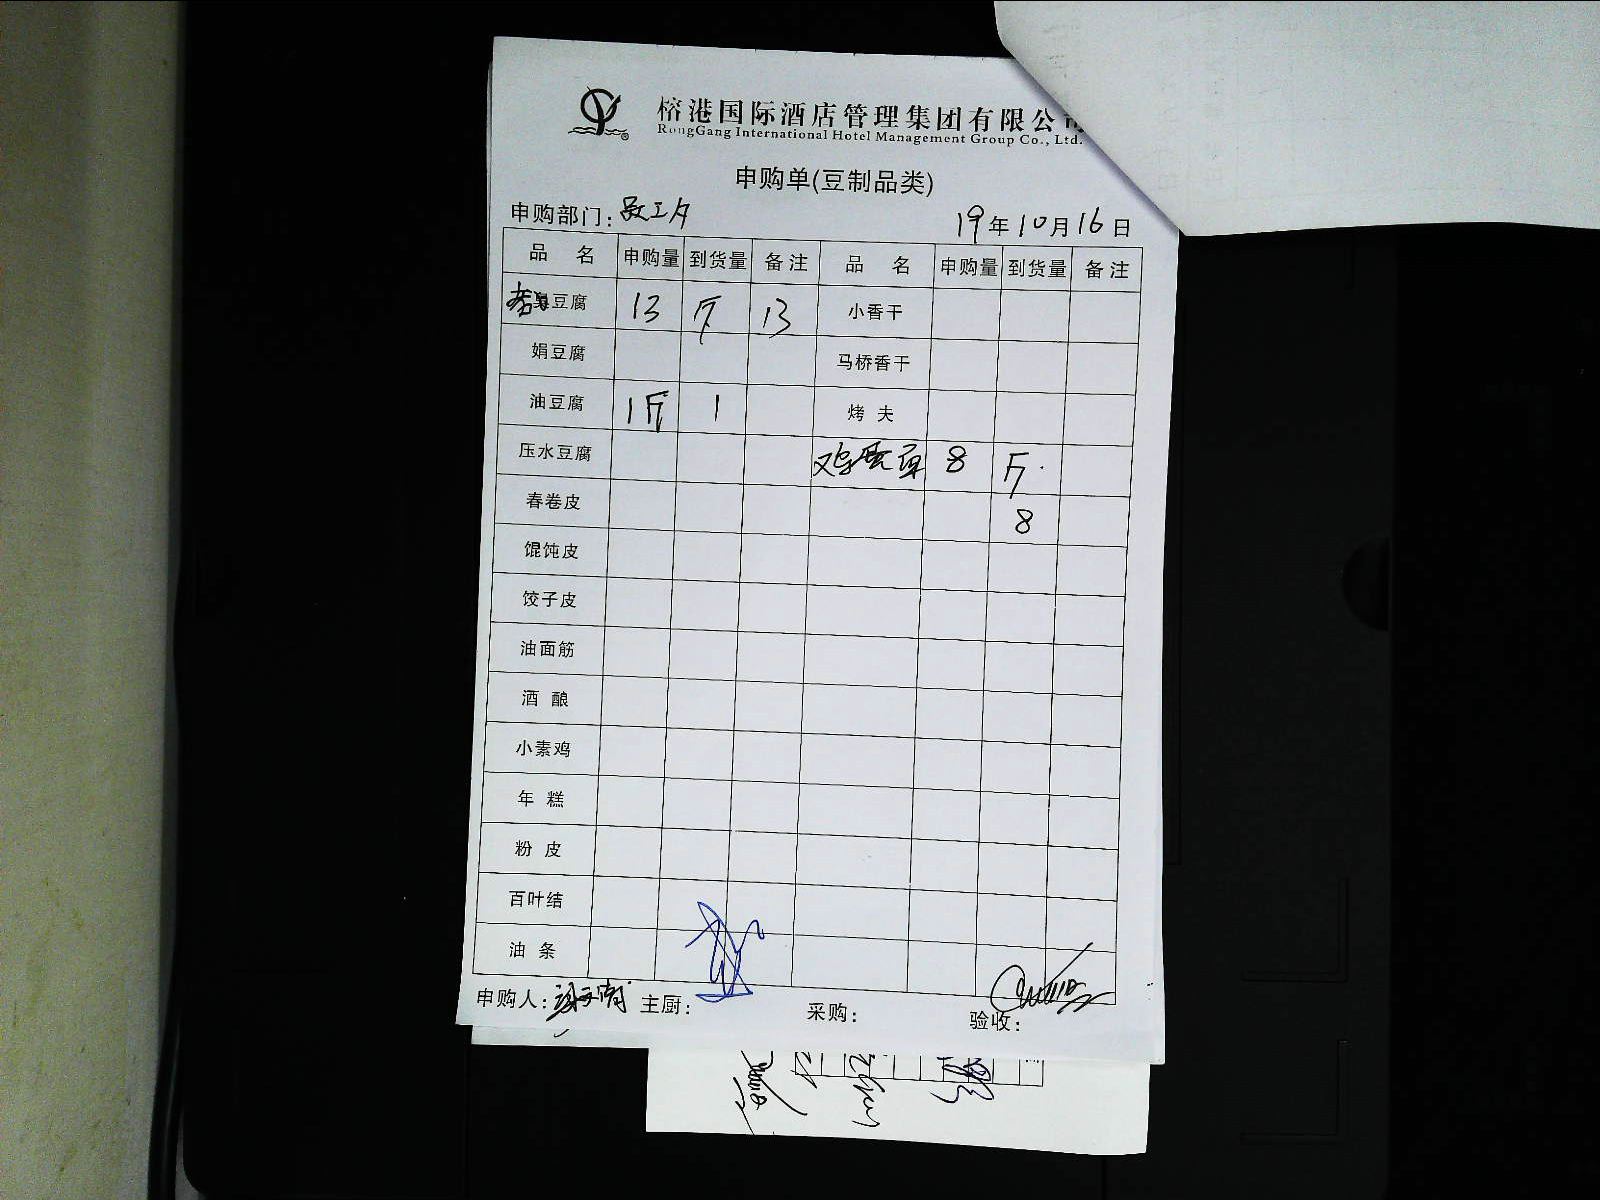 榕港国际酒店管理集团有限公司
RongGang International Hotel Management Group Co., Ltd.
申购单(豆制品类)
申购部门: 员工夕 19年10月16日
品 名 申购量 到货量 备注 品 名 申购量 到货量 备注
老豆腐 13 斤 13 小香干
娟豆腐 马桥香干
油豆腐 1斤 1 烤 夫
压水豆腐 鸡蛋豆 8 斤
春卷皮 8
馄饨皮
饺子皮
油面筋
酒 酿
小素鸡
年 糕
粉 皮
百叶结
油 条
申购人: 主厨: 采购: 验收: